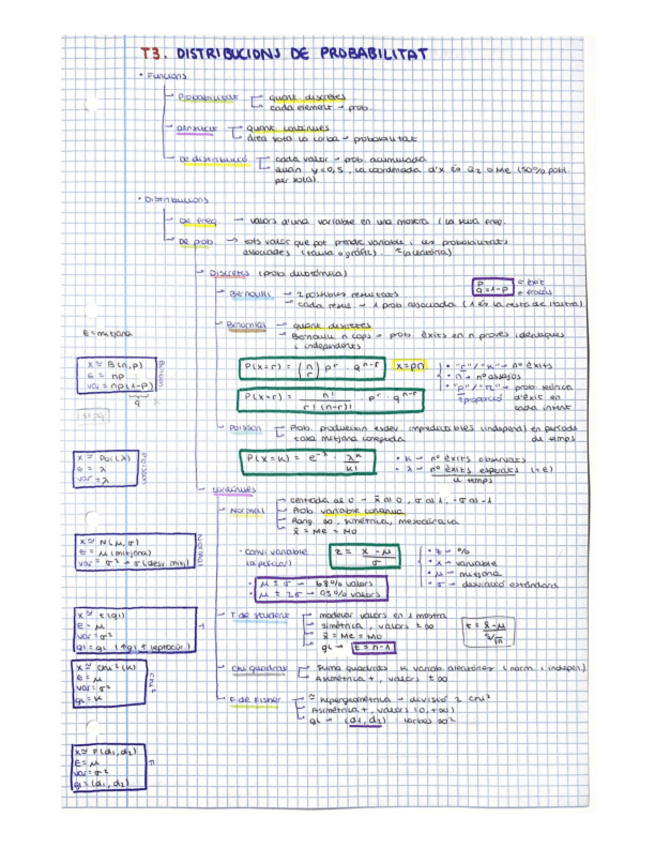 T3. DISTRIBUCIONS DE PROBABILITAT
• Funcions
Probabilitat
quant. discretes
cada element → prob.
Densitat
quant. contínues
àrea sota la corba → probabilitat
De distribució
cada valor → prob. acumulada
quan y=0,5, la coordenada d'x és Q2 o Me (50% pobl.
per sota).
• Distribucions
De freq. → valors d'una variable en una mostra i la seva freq.
De prob → tots valors que pot prendre variable i les probabilitats
associades (taula o gràfic).
Discretes (prob dicotòmica)
p = èxit
q = 1-p = fracàs
Bernoulli → 2 possibles resultats
cada result → 1 prob associada (1 és la resta de l'altra)
E = mitjana
Binomial → quant discretes
Bernoulli n cops → prob. èxits en n proves idèntiques
i independents
x ≈ B(n,p)
E = np
var = np(1-p)
q
Binom
P(x=r) = (n r) p^r · q^n-r
x=pn
• "r"/"k" → nº èxits
• n → nº assajos
• "p"/"π" → prob. teòrica
proporció d'èxit en
cada intent
P(x=r) = n! / r!(n-r)! · p^r · q^n-r
Poisson
Prob. produeixin esdev. impredictibles (independ) en període
taxa mitjana coneguda de temps
x ≈ Poi(λ)
E = λ
var = λ
Poisson
P(x=k) = e^-λ · λ^k / k!
• k → nº èxits observats
• λ → nº èxits esperats (=E)
u temps
Contínues
Normal
centrada al 0 → x̄ al 0, σ al 1, -σ al -1
Prob. variable contínua
Rang ∞, simètrica, mesocúrtica
x̄ = Me = Mo
x ≈ N(μ,σ)
E = μ (mitjana)
var = σ² → σ (desv. mitj)
Normal
• Canvi variable
z = x - μ / σ
• z → %
• x → variable
• μ → mitjana
• σ → desviació estàndard
• μ ± σ → 68% valors
• μ ± 2σ → 95% valors
T de student
modelar valors en 1 mostra
simètrica, valors ± ∞
x̄ = Me = Mo
gl → t = n-1
t = x̄-μ / s/√n
x ≈ t(gl)
E = μ
var = σ²
gl = gl (↑gl t leptocúr.)
T
Chi quadrat
Suma quadrats k variab. aleatòries (norm. i indepen.)
Asimètrica +, valors ± ∞
x ≈ Chi²(k)
E = μ
var = σ²
gl = k
Chi²
F de Fisher
≈ hipergeomètrica → divisió 2 chi²
Asimètrica +, valors (0, +∞)
gl → (d1, d2)
x ≈ F(d1, d2)
E = μ
var = σ²
gl = (d1, d2)
F